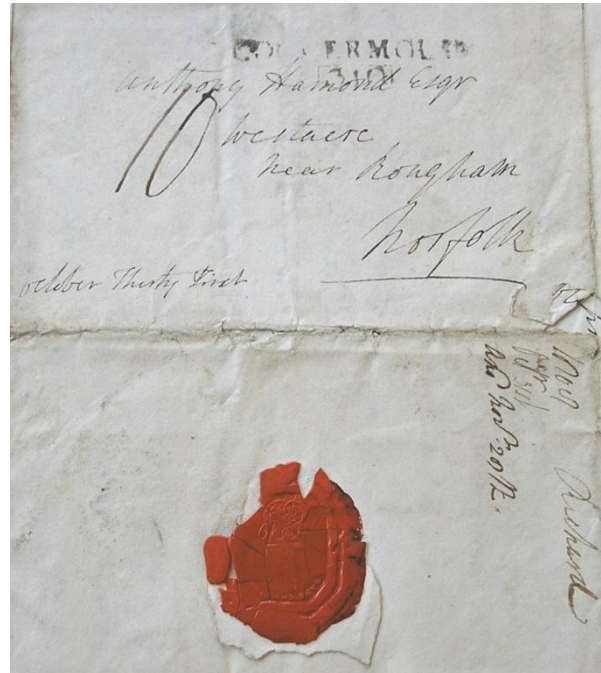 COCKERMOUTH
310
Anthony Hamond Esqr
10
Westacre
near Rougham
Norfolk
October Thirty First
1809
Octr 31st
Ansd Novr 20th
Richard